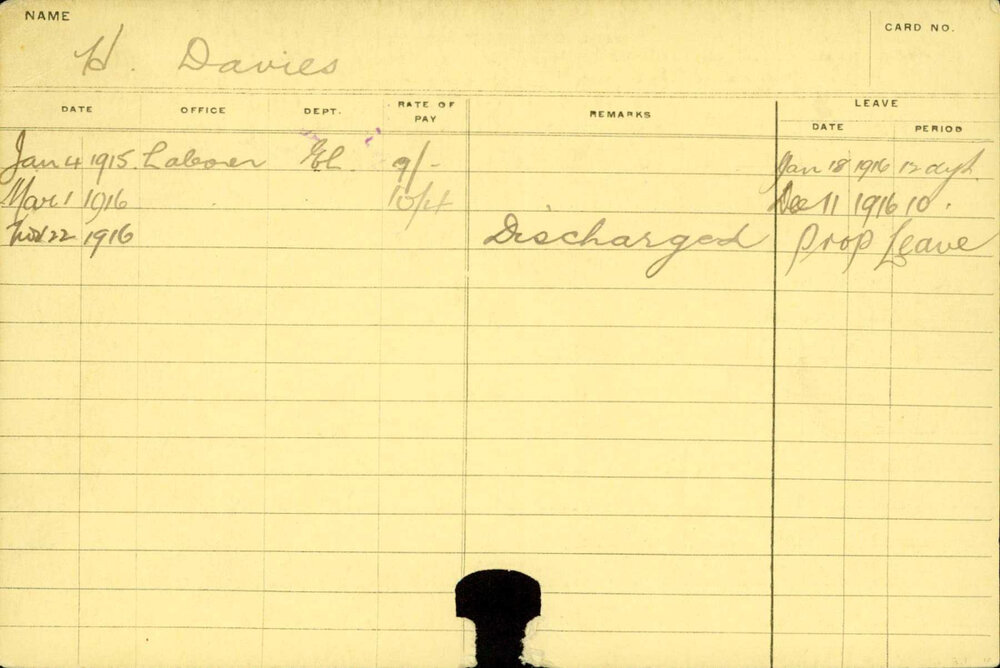 NAME
H. Davies
CARD NO.
DATE OFFICE DEPT. RATE OF PAY REMARKS LEAVE
DATE PERIOD
Jan 4 1915 Laborer 9/- Jan 18 1916 12 dys.
Mar 1 1916 10/4 Dec 11 1916 10.
Nov 22 1916 Discharged Prop Leave